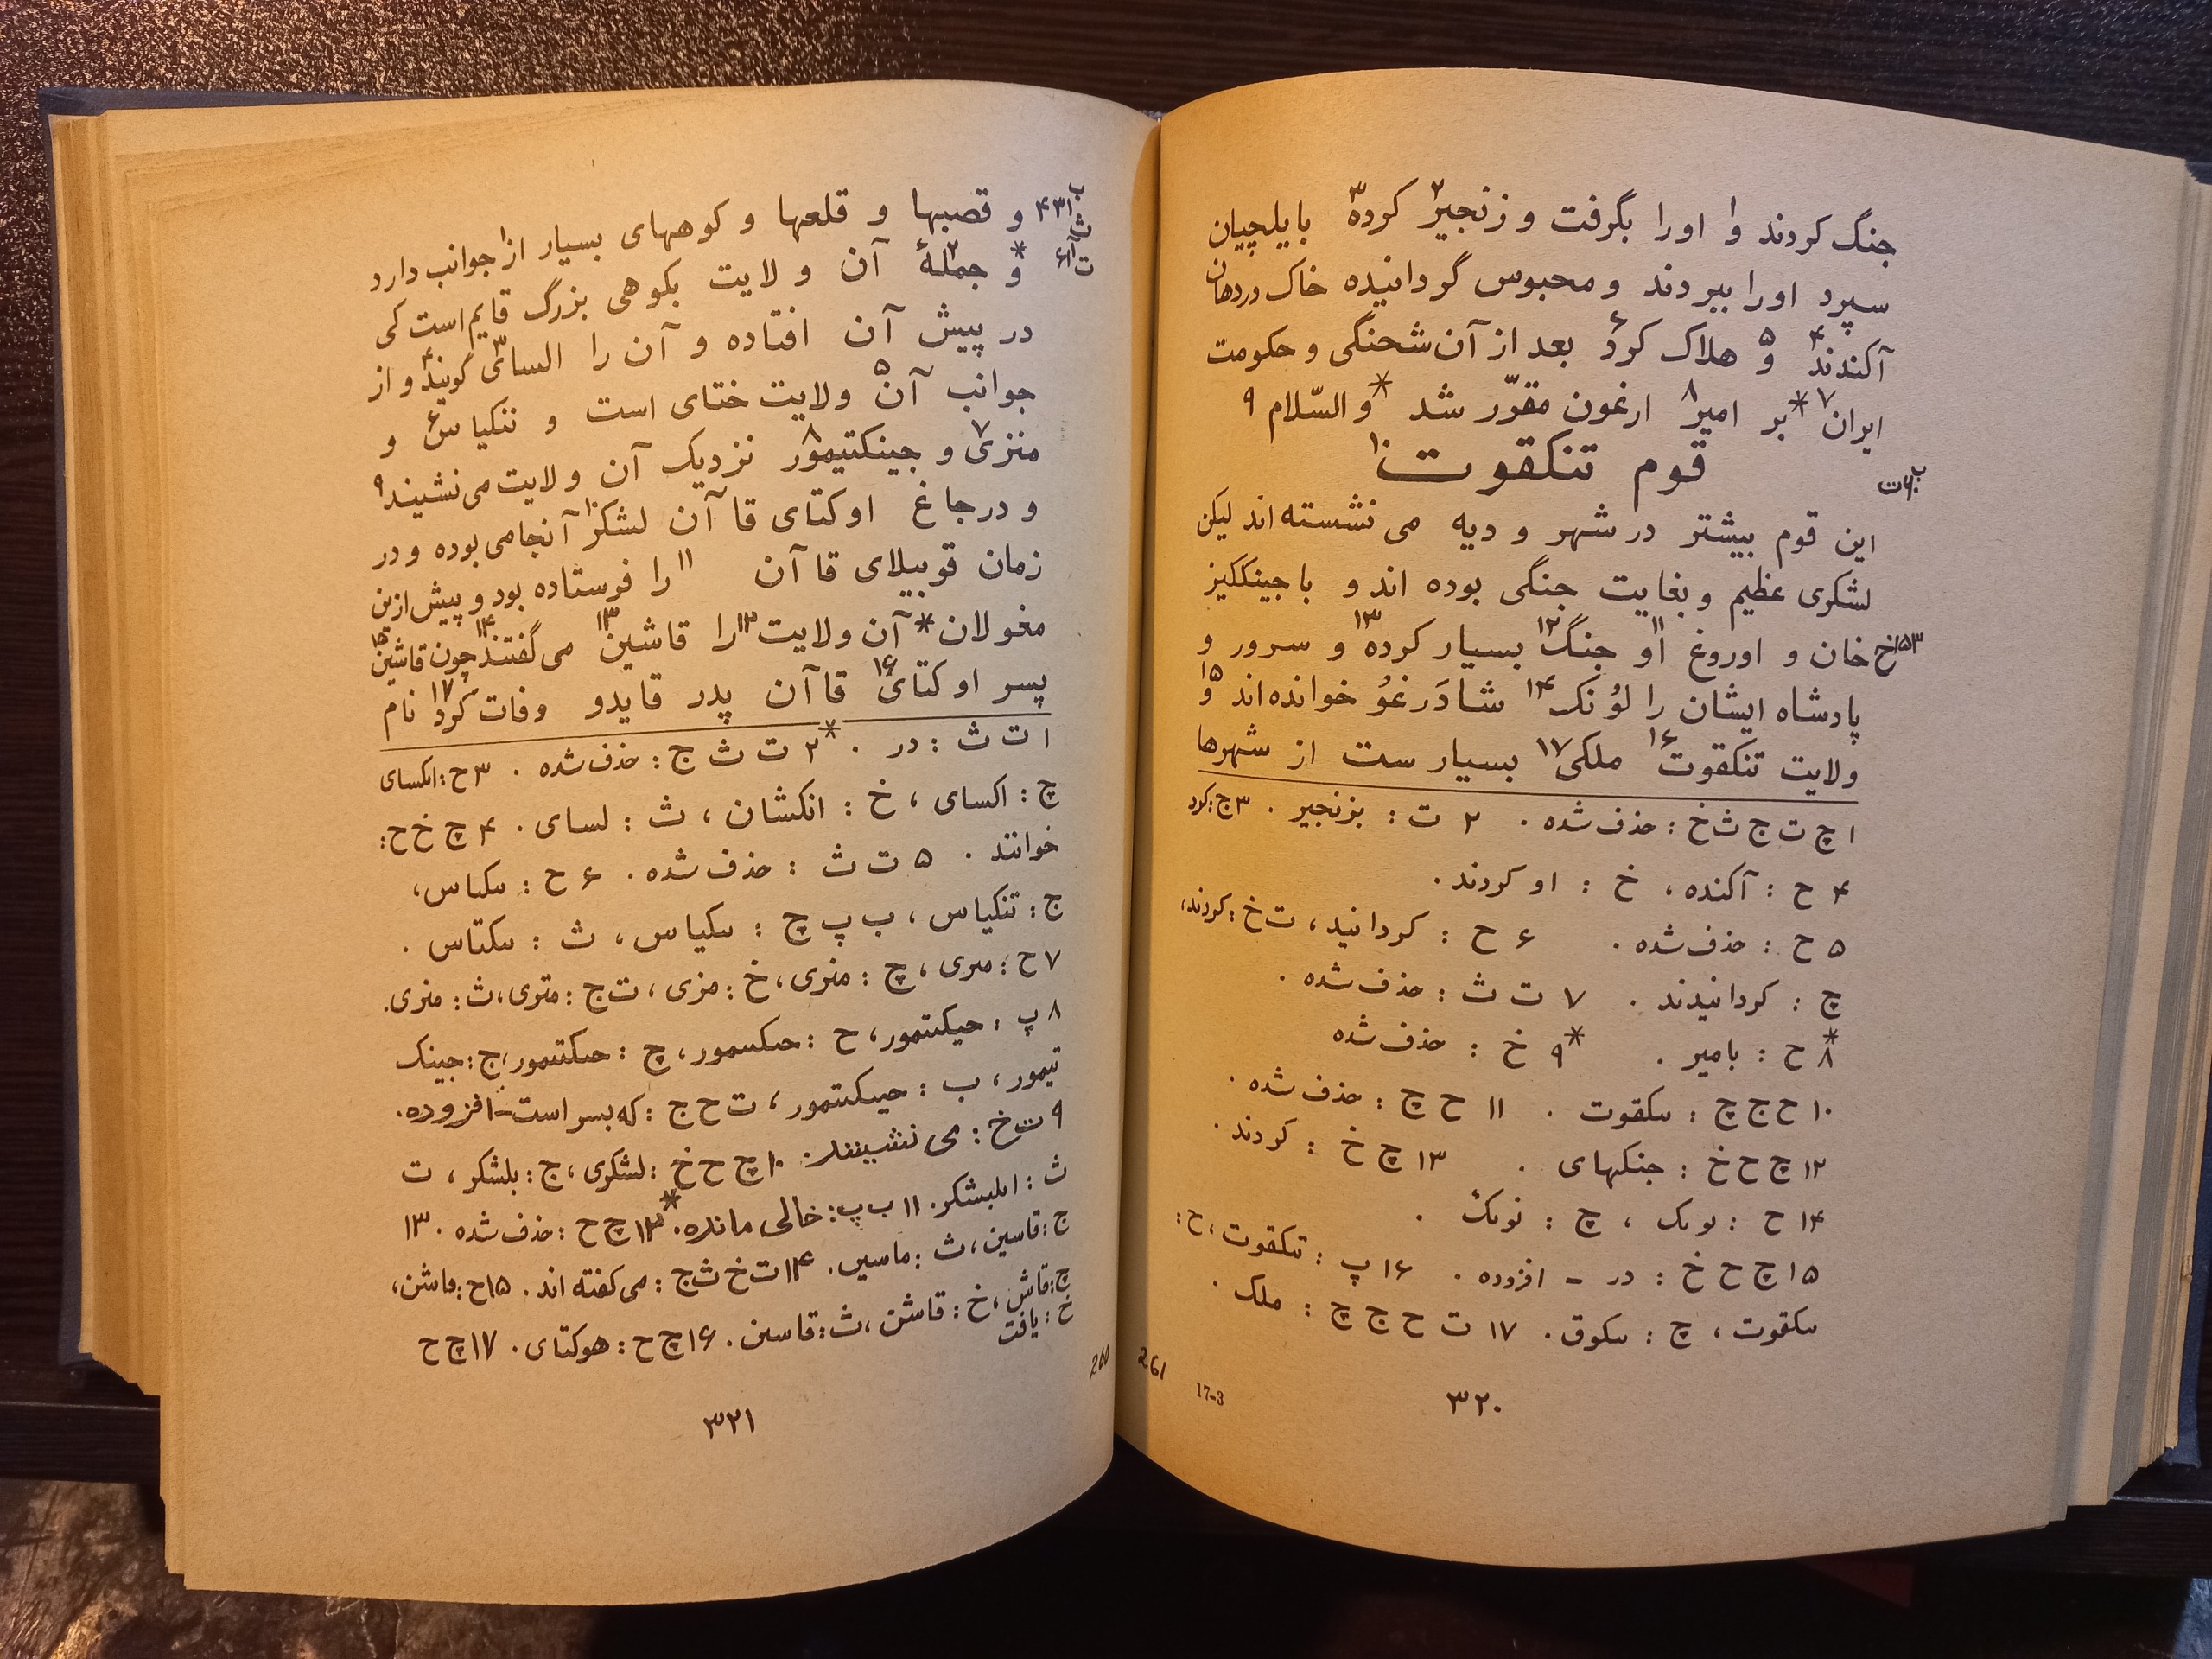 جنگ کردند و۱ اورا بگرفت و زنجیر۲ کرده۳ بایلچیان
سپرد اورا ببردند و محبوس گردانیده خاک دردهان
آکندند۴ و۵ هلاک کرد۶ بعد از آن شحنگی و حکومت
ایران۷ *بر امیر۸ ارغون مقرّر شد *و السّلام ۹
قوم تنکقوت۱۰
این قوم بیشتر در شهر و دیه می نشسته اند لیکن
لشکری عظیم و بغایت جنگی بوده اند و با جینککیز
۱۵۳خ خان و اوروغ او۱۱ جنگ۱۲ بسیار کرده۱۳ و سرور و
پادشاه ایشان را لوُنک۱۴ شادَرغوُ خوانده اند و۱۵
ولایت تنکقوت۱۶ ملکی۱۷ بسیار ست از شهرها
۱ چ ت ج ث خ : حذف شده . ۲ ت : بزنجیر . ۳ ج : کرد
۴ ح : آکنده ، خ : او کردند .
۵ ح : حذف شده . ۶ ح : کردانید ، ت خ : کردند ،
چ : کردانیدند . ۷ ت ث : حذف شده .
*۸ ح : بامیر . *۹ خ : حذف شده
۱۰ ح ج چ : ںںکقوت . ۱۱ ح چ : حذف شده .
۱۲ چ ح خ : جنکهای . ۱۳ چ خ : کردند .
۱۴ ح : ںوںک ، چ : نوںک .
۱۵ چ ح خ : در - افزوده . ۱۶ پ : تںکقوت ، ح :
ںںکقوت ، چ : ںںکوق . ۱۷ ت ح ج چ : ملک .
17-3
261
۳۲۰
و قصبها و قلعها و کوههای بسیار از۱ جوانب دارد
*و جملهٔ۲ آن ولایت بکوهی بزرگ قایم است کی
در پیش آن افتاده و آن را السای۳ گویند۴ و از
جوانب آن۵ ولایت ختای است و تنکیاس۶ و
منزی۷ و جینکتیمور۸ نزدیک آن ولایت می نشیند۹
و درجاغ اوکتای قاآن لشکر۱۰ آنجا می بوده و در
زمان قوبیلای قاآن ۱۱ را فرستاده بود و پیش ازین
مغولان *آن ولایت۱۲ را قاشین۱۳ می گفتند۱۴ چون قاشین۱۵
پسر اوکتای۱۶ قاآن پدر قایدو وفات کرد۱۷ نام
۱ ت ث : در . *۲ ت ث ج : حذف شده . ۳ ح : الکسای
چ : اکسای ، خ : انکشان ، ث : لسای . ۴ چ خ ح :
خوانند . ۵ ت ث : حذف شده . ۶ ح : ںںکںاس ،
ج : تنکیاس ، ب پ چ : ںںکیاس ، ث : ںںکتاس .
۷ ح : مںری ، چ : منری ، خ : مزی ، ت ج : متری ، ث : منری .
۸ پ : حیکںتمور ، ح : حںکںںمور ، چ : حںکتںمور ، ج : جینک
تیمور ، ب : حیںکںتمور ، ت ح ج : که بسر است - افزوده .
۹ ت خ : می نشینند . ۱۰ چ ح خ : لشکری ، ج : بلشکر ، ت
ث : ایلبشکر . ۱۱ ب پ : خالی مانده . *۱۲ چ ح : حذف شده . ۱۳
ج : قاسین ، ث : ماسیں . ۱۴ ت خ ث ج : می کفته اند . ۱۵ ح : ٯاشن ،
چ : قاش ، خ : قاشن ، ث : قاسین . ۱۶ چ ح : هوکتای . ۱۷ چ ح
خ : یافت
260
۳۲۱